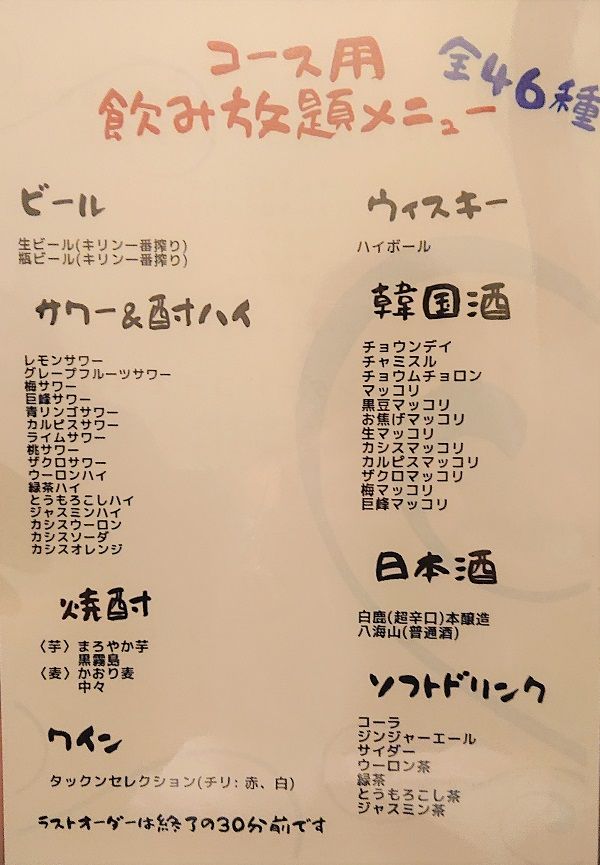 コース用
飲み放題メニュー
全46種
ビール
生ビール(キリン一番搾り)
瓶ビール(キリン一番搾り)
サワー&酎ハイ
レモンサワー
グレープフルーツサワー
梅サワー
巨峰サワー
青リンゴサワー
カルピスサワー
ライムサワー
桃サワー
ザクロサワー
ウーロンハイ
緑茶ハイ
とうもろこしハイ
ジャスミンハイ
カシスウーロン
カシスソーダ
カシスオレンジ
焼酎
〈芋〉まろやか芋
黒霧島
〈麦〉かおり麦
中々
ワイン
タックンセレクション(チリ: 赤、白)
ラストオーダーは終了の30分前です
ウィスキー
ハイボール
韓国酒
チョウンデイ
チャミスル
チョウムチョロン
マッコリ
黒豆マッコリ
お焦げマッコリ
生マッコリ
カシスマッコリ
カルピスマッコリ
ザクロマッコリ
梅マッコリ
巨峰マッコリ
日本酒
白鹿(超辛口)本醸造
八海山(普通酒)
ソフトドリンク
コーラ
ジンジャーエール
サイダー
ウーロン茶
緑茶
とうもろこし茶
ジャスミン茶